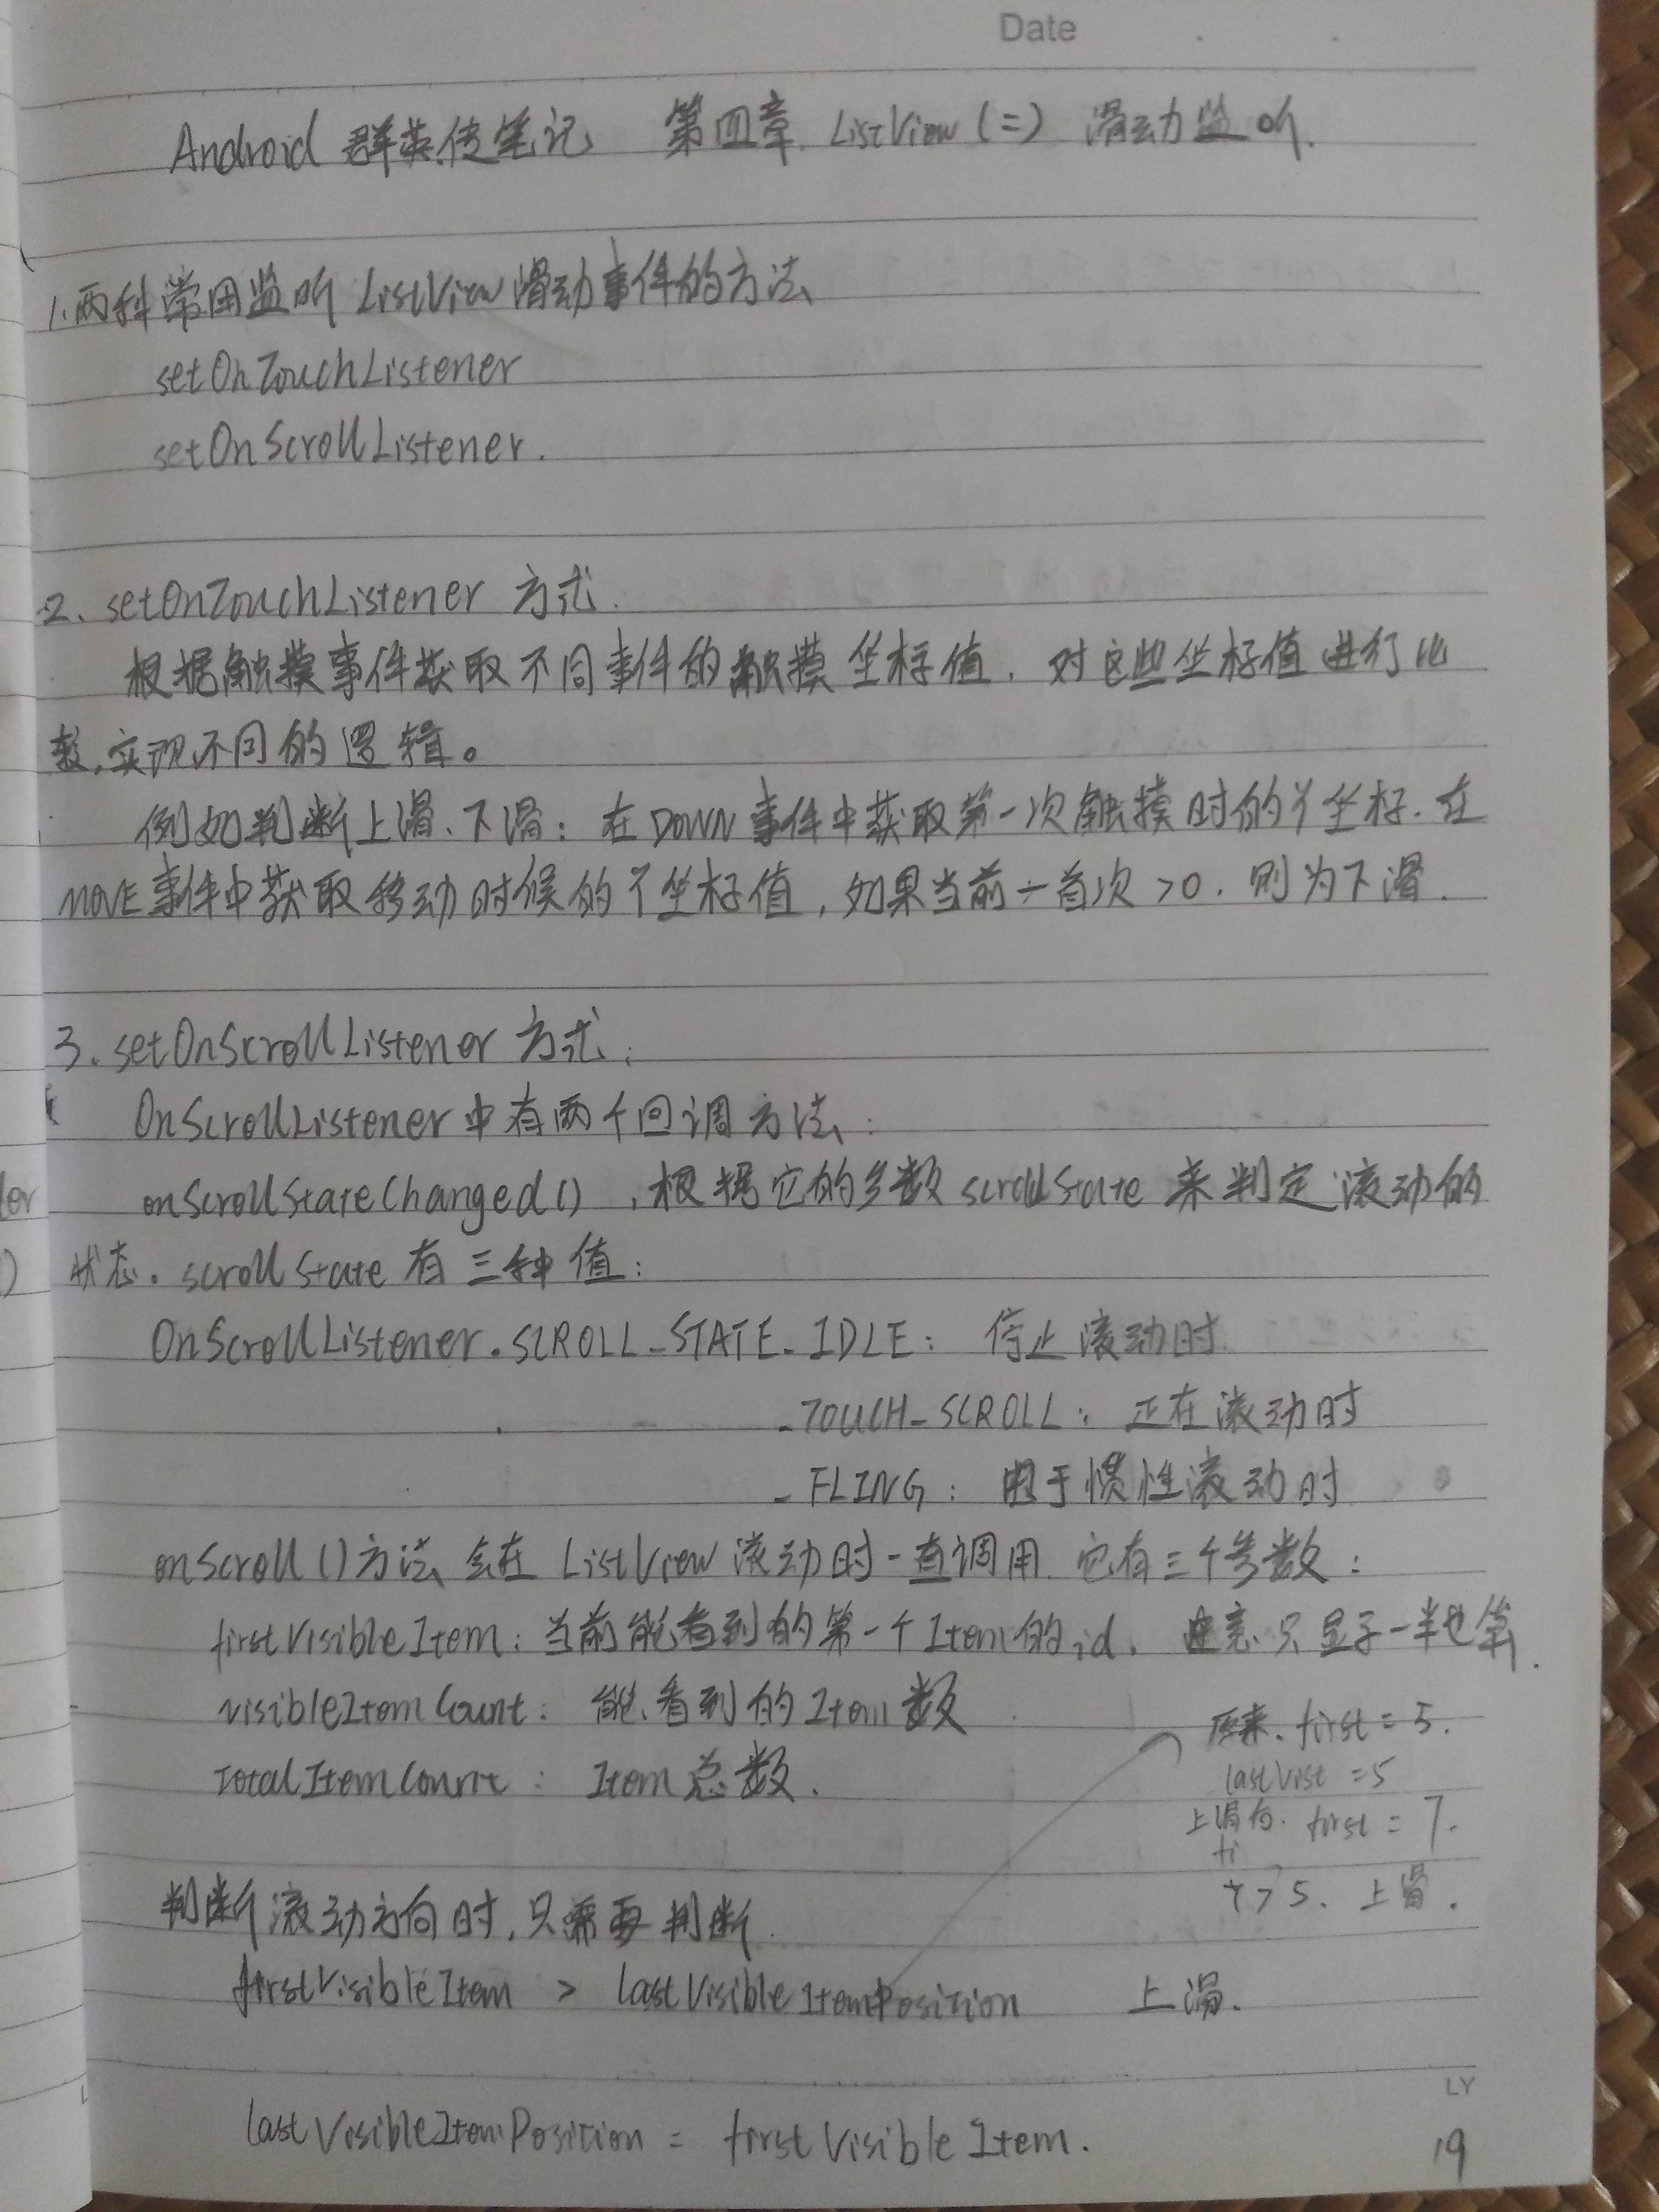 Date
Android 群英传笔记 第四章 ListView (二) 滑动监听.
1.两种常用监听 ListView 滑动事件的方法
setOnTouchListener
setOnScrollListener.
2、setOnTouchListener 方式.
根据触摸事件获取不同事件的触摸坐标值，对这些坐标值进行比
较,实现不同的逻辑。
例如判断上滑、下滑：在DOWN事件中获取第一次触摸时的Y坐标.在
MOVE事件中获取移动时候的Y坐标值，如果当前-首次 >0. 则为下滑.
3. setOnScrollListener 方式：
OnScrollListener中有两个回调方法：
onScrollStateChanged() ，根据它的参数 scrollState 来判定滚动的
状态. scrollState 有三种值：
OnScrollListener.SCROLL_STATE_IDLE： 停止滚动时
_TOUCH_SCROLL： 正在滚动时
_FLING： 用于惯性滚动时
onScroll()方法会在 ListView 滚动时一直调用. 它有三个参数：
firstVisibleItem：当前能看到的第一个Item的id. 注意只显示一半也算.
visibleItemCount： 能看到的Item数
totalItemCount： Item总数.
原来. first = 5.
lastVisi = 5
上滑后. first = 7.
fi
7 > 5. 上滑.
判断滚动方向时,只需要判断
firstVisibleItem > lastVisibleItemPosition 上滑.
lastVisibleItemPosition = firstVisibleItem.
LY
19
ler
)